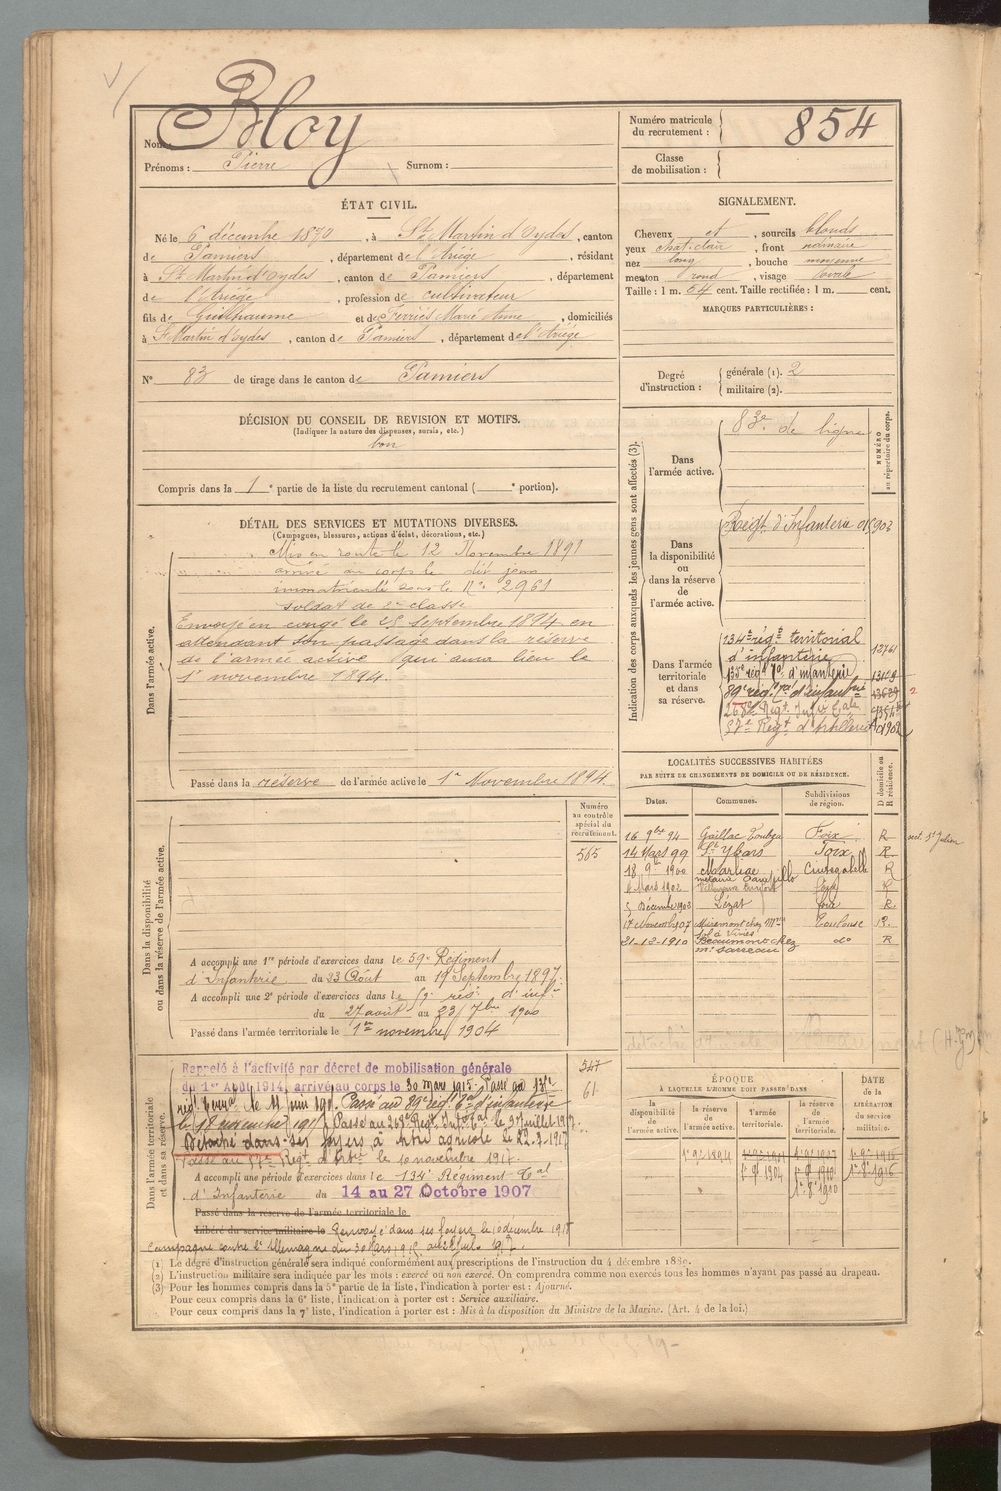 Bloy
Nom
Prénoms : Pierre Surnom :
Numéro matricule du recrutement : 854
Classe de mobilisation :
ÉTAT CIVIL.
Né le 6 décembre 1870, à St Martin d'Oydes, canton
de Pamiers, département de l'Ariège, résidant
à St Martin d'Oydes, canton de Pamiers, département
de l'Ariège, profession de cultivateur
fils de Guilhaume et de Ferriès Marie Anne, domiciliés
à St Martin d'Oydes, canton de Pamiers, département de l'Ariège
N° 83 de tirage dans le canton de Pamiers
DÉCISION DU CONSEIL DE REVISION ET MOTIFS.
(Indiquer la nature des dispenses, sursis, etc.)
bon
Compris dans la 1e partie de la liste du recrutement cantonal ( e portion).
SIGNALEMENT.
Cheveux et, sourcils blonds
yeux chat. clair, front ordinaire
nez long, bouche moyenne
menton rond, visage ovale
Taille : 1 m. 64 cent. Taille rectifiée : 1 m. cent.
MARQUES PARTICULIÈRES :
Degré d'instruction : générale (1). 2
militaire (2).
DÉTAIL DES SERVICES ET MUTATIONS DIVERSES.
(Campagnes, blessures, actions d'éclat, décorations, etc.)
Dans l'armée active.
Mis en route le 12 Novembre 1891
arrivé au corps le dit jour
immatriculé sous le N° 2961
soldat de 2e classe
Envoyé en congé le 25 septembre 1894 en
attendant son passage dans la réserve
de l'armée active qui aura lieu le
1er novembre 1894.
Passé dans la réserve de l'armée active le 1er Novembre 1894.
Indication des corps auxquels les jeunes gens sont affectés (3).
NUMÉRO au répertoire du corps.
Dans l'armée active.
83e de ligne
Dans la disponibilité ou dans la réserve de l'armée active.
Reigt d'Infanterie
Dans l'armée territoriale et dans sa réserve.
134e régt territorial
d'infanterie 12761
135e régt Tal d'infanterie
89e régt Tal d'infanterie
268e Régt Infie Tale
57e Régt d'Artillerie
LOCALITÉS SUCCESSIVES HABITÉES
PAR SUITE DE CHANGEMENTS DE DOMICILE OU DE RÉSIDENCE.
Dates. Communes. Subdivisions de région. D domicile ou R résidence.
16 9bre 94 Gaillac Toulza Foix R
14 Mars 99 St Ybars Foix R.
1900 Marliac R
Mars 1902 Villeneuve R
5 Décembre 1903 Lézat Foix R.
17 Novembre 1907 Miremont chez Mr Toulouse R.
21-12-1910 Beaumont chez do R
Dans la disponibilité ou dans la réserve de l'armée active.
Numéro au contrôle spécial du recrutement.
565
A accompli une 1re période d'exercices dans le 59e Régiment
d'Infanterie du 23 Août au 19 Septembre 1897.
A accompli une 2e période d'exercices dans le 59e rég. d'infie
du 27 août au 23 7bre 1900
Passé dans l'armée territoriale le 1er novembre 1904
Dans l'armée territoriale et dans sa réserve.
547
61
Rappelé à l'activité par décret de mobilisation générale
du 1er Août 1914, arrivé au corps le 30 mars 1915. Passé au 135e
régt Terral le 11 juin 191. Passé au 89e régt Tal d'infanterie
le 18 novembre 191 Passé au 268e Régt Infie Tale le 27 juillet 1917
Détaché dans ses foyers à titre agricole le 22-2-1917
Passé au 57e Régt d'Artie le 10 novembre 1917.
A accompli une période d'exercices dans le 134e Régiment Tal
d'Infanterie du 14 au 27 Octobre 1907
Passé dans la réserve de l'armée territoriale le
Libéré du service militaire le Renvoyé dans ses foyers le 10 décembre 1918
Campagne contre l'Allemagne du 30 Mars 1915 au
ÉPOQUE
À LAQUELLE L'HOMME DOIT PASSER DANS
la disponibilité de l'armée active.
la réserve de l'armée active.
l'armée territoriale.
la réserve de l'armée territoriale.
DATE de la LIBÉRATION du service militaire.
1er 9bre 1894
(1) Le degré d'instruction générale sera indiqué conformément aux prescriptions de l'instruction du 4 décembre 1889.
(2) L'instruction militaire sera indiquée par les mots : exercé ou non exercé. On comprendra comme non exercés tous les hommes n'ayant pas passé au drapeau.
(3) Pour les hommes compris dans la 5e partie de la liste, l'indication à porter est : Ajourné.
Pour ceux compris dans la 6e liste, l'indication à porter est : Service auxiliaire.
Pour ceux compris dans la 7e liste, l'indication à porter est : Mis à la disposition du Ministre de la Marine. (Art. 4 de la loi.)